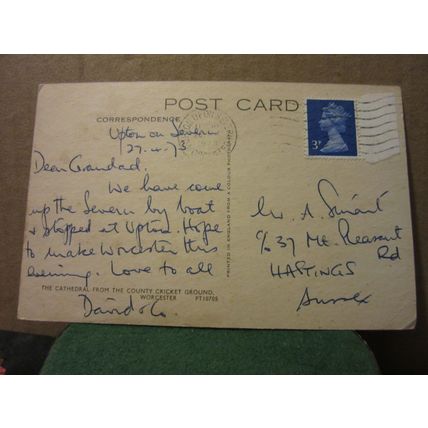 POST CARD
CORRESPONDENCE
Upton on Severn
27.4.73
Dear Grandad.
We have come
up the Severn by boat
& stopped at Upton. Hope
to make Worcester this
evening. Love to all
THE CATHEDRAL FROM THE COUNTY CRICKET GROUND,
WORCESTER PT10705
David & Co.
PRINTED IN ENGLAND FROM A COLOUR PHOTOGRAPH
3P
Mr. A.
C/o 37 Mt. Pleasant
Rd
HASTINGS
Sussex